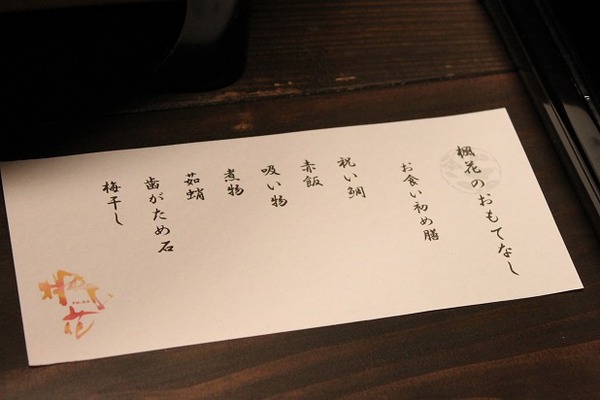 楓花のおもてなし
お食い初め膳
祝い鯛
赤飯
吸い物
煮物
茹蛸
歯がため石
梅干し
楓花